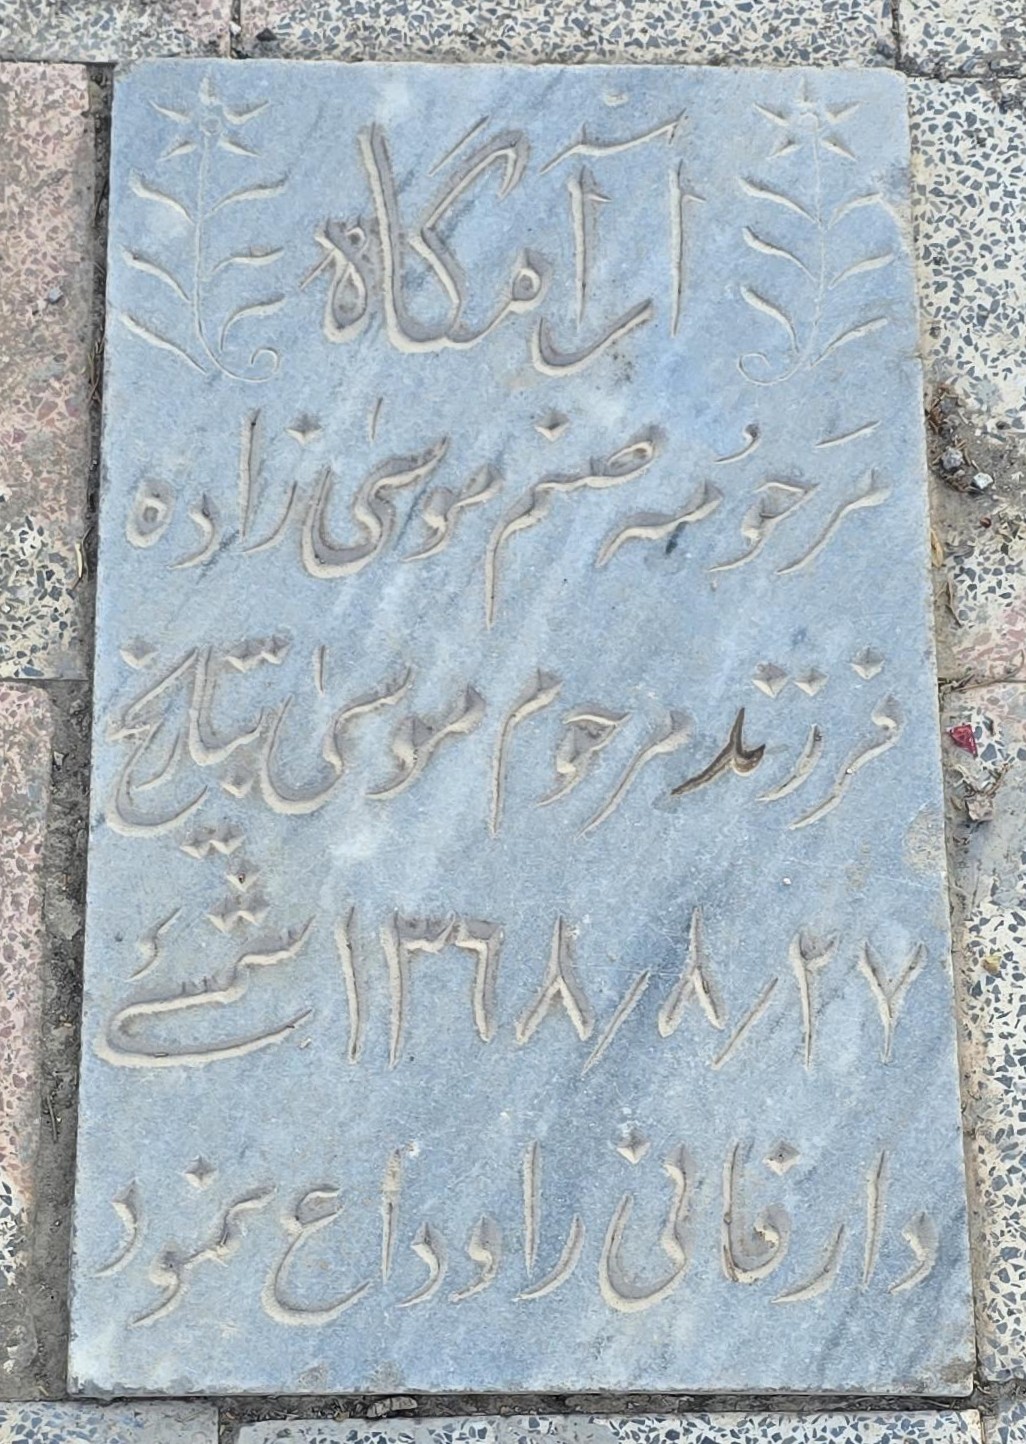 آرامگاه
مرحومه صنم موسی زاده
فرزند مرحوم موسی بتاریخ
۲۷/۸/۱۳۶۸ شمسی
دار فانی را وداع نمود